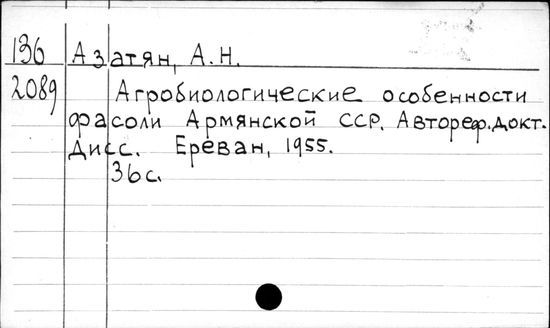 136 Азатян, А.Н.
2089 Агробиологические особенности
фасоли Армянской ССР. Автореф. докт.
дисс. Ереван, 1955.
36 с.